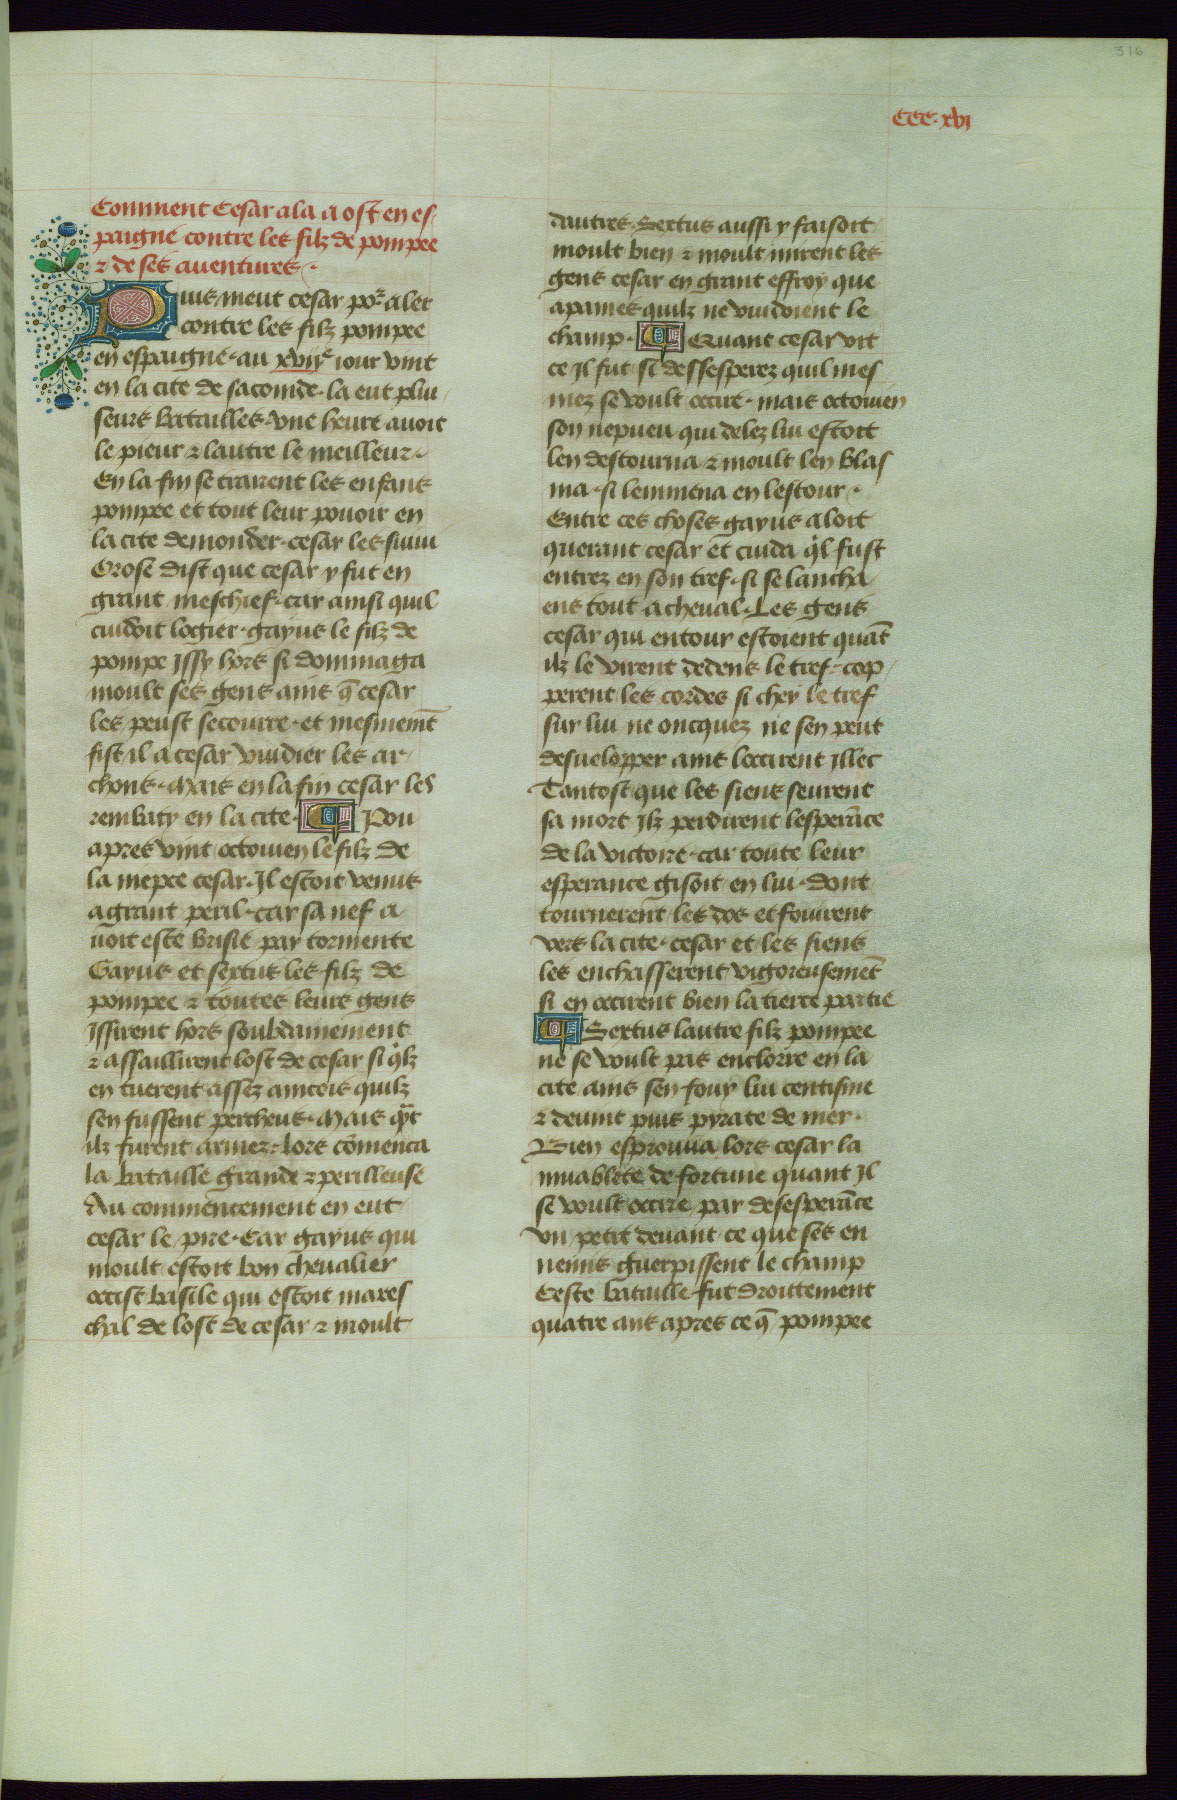 316
CCC.xvi
Comment Cesar ala a ost en es
paigne contre les filz de pompee
⁊ de ses auentures.
Puis meut cesar por aler
contre les filz pompee
en espaigne. au xviie iour vint
en la cite de saconide. la eut pluı
seurs batailles. vne heure auoit
le pieur ⁊ lautre le meilleur.
En la fin se trairent les enfans
pompee et tout leur pouoir en
la cite demonder. cesar les siuui
Orose dist que cesar y fut en
grant meschief. car ainsi quil
cuidoit logier. gayus le filz de
pompe Jssy hors si dommaga
moult ses gens ains q̄ cesar
les peust secourre. et mesmemt̄
fist il a cesar vuidier les ar
chons. Mais en la fin cesar les
rembaty en la cite. Pou
apres vint octouien le filz de
la niepce cesar. Jl estoit venus
a grant peril. car sa nef a
uoit este brisie par tormente
Gayus et sextus les filz de
pompee ⁊ toutes leurs gens
Jssirent hors soubdainement
⁊ assaillirent lost de cesar si qlz
en tuerent assez aincois quilz
sen fussent percheus. Mais qt
ilz furent armez. lors cōmenca
la bataille grande ⁊ perilleuse
Au commencement en eut
cesar le pire. Car gayus qui
moult estoit bon cheualier
occist basile qui estoit mares
chal de lost de cesar ⁊ moult
dautres. Sextus aussi y faisoit
moult bien ⁊ moult mirent les
gens cesar en grant effroy que
apaines quilz ne vuidoient le
champ. Quant cesar vit
ce Jl fut si dessesperez quil mes
mez se voult occire. mais octouien
son nepueu qui delez lui estoit
len destourna ⁊ moult len blas
ma. si lemmena en lestour.
Entre ces choses gayus aloit
querant cesar et cuida ql fust
entrez en son tref. si se lancha
ens tout a cheual. Les gens
cesar qui entour estoient quāt
ilz le virent dedens le tref. cop
perent les cordes si chey le tref
sur lui ne oncquez ne sen peut
desuelopper ains loccirent Jllec
Tantost que les siens sceurent
sa mort Jlz perdirent lesperāce
de la victoire. car toute leur
esperance gisoit en lui. dont
tournerent les dos et fouirent
vers la cite. cesar et les siens
les enchasserent vigoreusemēt
si en occirent bien la tierce partie
Sextus lautre filz pompee
ne se voult pas enclorre en la
cite ains sen fouy lui centisme
⁊ deuint puis pyrate de mer.
Bien esprouua lors cesar la
muablete de fortune quant Jl
se voult occire par desesperāce
vn petit deuant ce que ses en
nemis guerpissent le champ
Ceste bataille fut droittement
quatre ans apres ce q̄ pompee